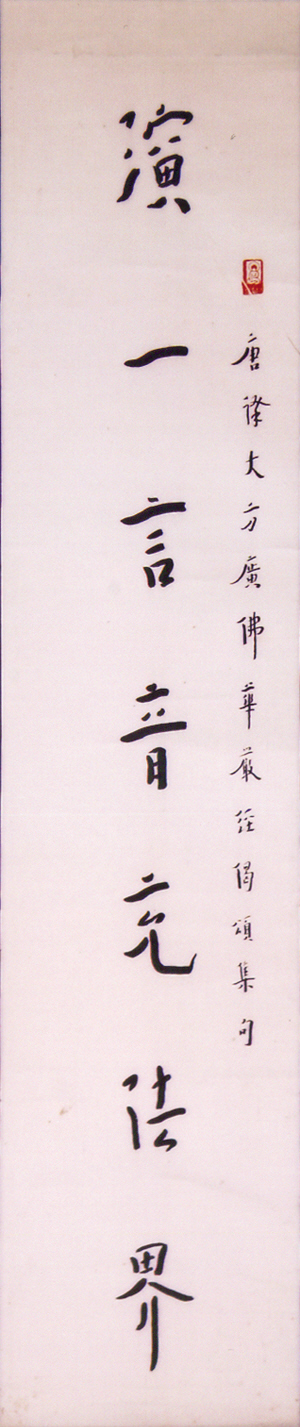 唐譯大方廣佛華嚴經偈頌集句
演一言音充法界